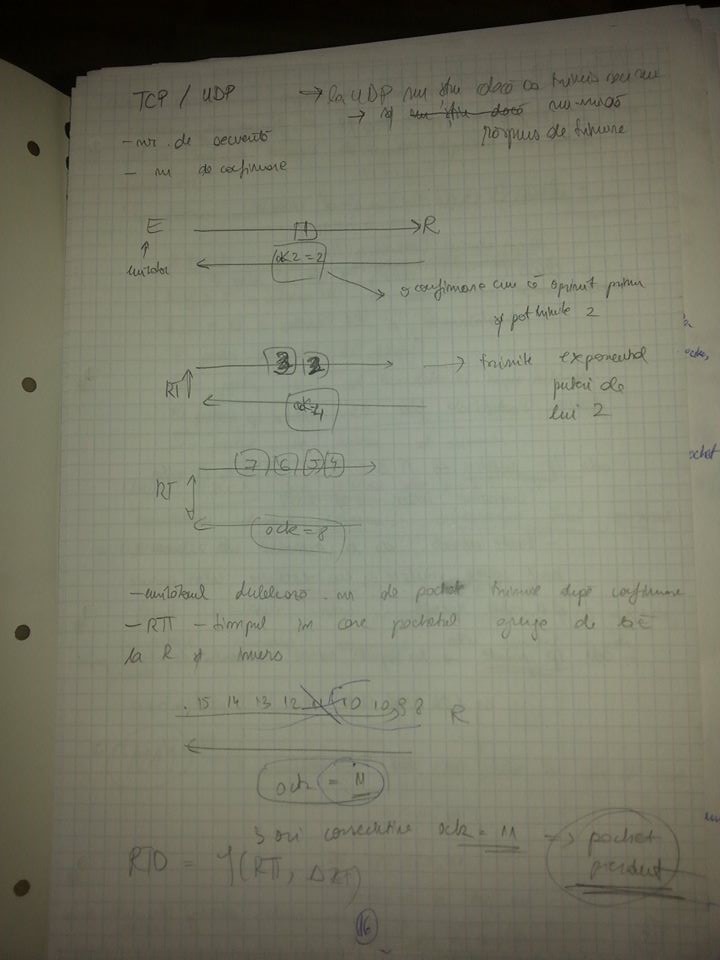 TCP / UDP → la UDP nu știu dacă s-a trimis sau nu
→ și nu știu dacă nu-mi dă
răspuns de trimitere
- nr. de secvență
- nr de confirmare
E 1 R
emițător
ack2 = 2
confirmare cum că a primit primu
și pot trimite 2
3 2 → trimite exponențial
puteri ale
lui 2
RT
ack=4
7 6 5 4
RT
ack = 8
- emițătorul dublează nr de pachete trimise după confirmare
- RTT - timpul în care pachetul ajunge de la E
la R și invers
15 14 13 12 11 10 10 9 8 R
ack = 11
3 ori consecutive ack = 11 → pachet
pierdut
RTO = f(RTT, ΔRT)
16